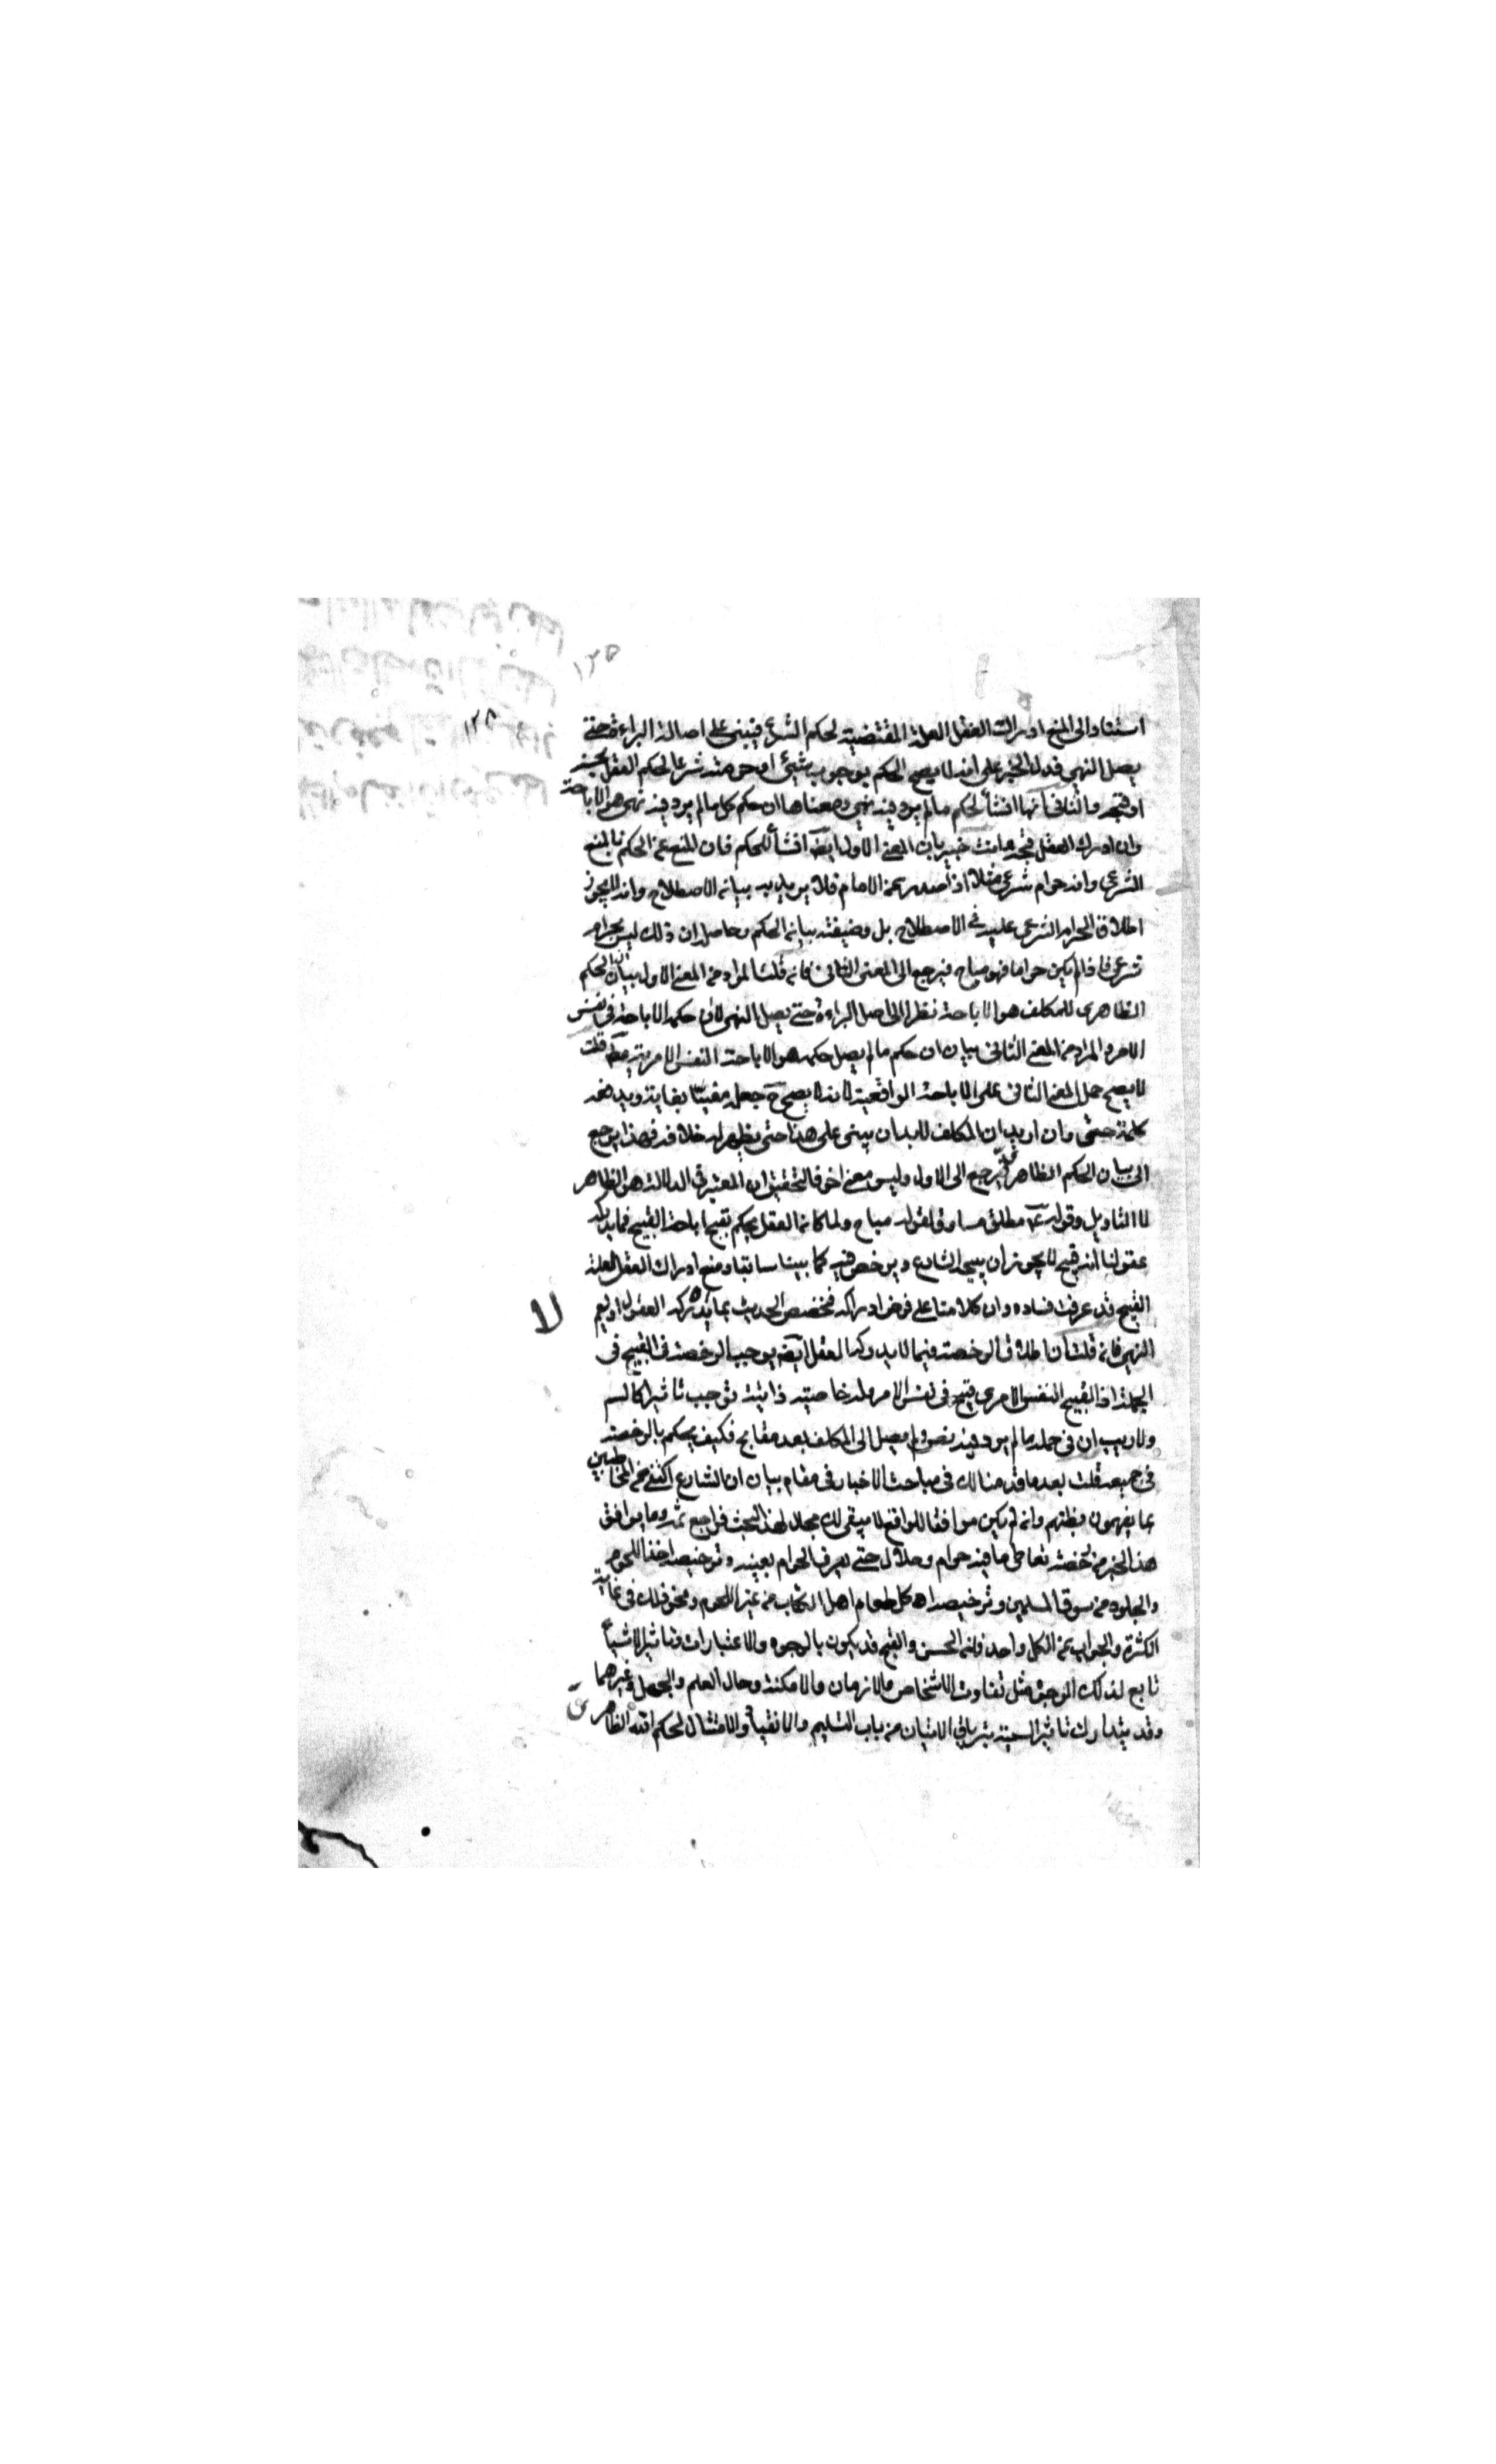 ١٢٥
١٢٨
استنادا الى المنع ادراك العقل العلة المقتضية لحكم الشرع فيبنى على اصالة البراءة حتى
يصل النهى فدل الخبر على انه لا يصح الحكم بوجوب شيئ او حرمته شرعا لحكم العقل بحسنه
او قبحه والثانى انها انشأ لحكم ما لم يرد فيه نهى ومعناها ان حكم كل ما لم يرد فيه نهى هو الاباحة
وان ادرك العقل قبحه وانت خبير بان المعنى الاول ايضا انشأ للحكم فان المنع عن الحكم بالمنع
الشرعى وانه حرام شرعى مثلا اذا صدر عن الامام فلا يريد به بيان الاصطلاح وانه لا يجوز
اطلاق الحرام الشرعى عليه فى الاصطلاح بل وضيفته بيان الحكم وحاصله ان ذلك ليس بحرام
شرعى فاذا لم يكن حراما فهو مباح فيرجع الى المعنى الثانى فان قلت المراد من المعنى الاول بيان ان الحكم
الظاهرى للمكلف هو الاباحة نظرا الى اصل البراءة حتى يصل النهى لا ان حكمه الاباحة فى نفس
الامر والمراد من المعنى الثانى بيان ان حكم ما لم يصل حكمه هو الاباحة النفس الامرية قلت
لا يصح حمل المعنى الثانى على الاباحة الواقعية لانه لا يصح ح جعله مغيّا بغاية ويدفعه
كلمة حتى وان اريد ان المكلف لا بد ان يبنى على هذا حتى يظهر له خلافه فهذا يرجع
الى بيان الحكم الظاهر فيرجع الى الاول وليس معنى اخر فالتحقيق ان المعتبر فى الدلالة هو الظاهر
لا التاويل وقوله ع مطلق مساوق لقوله مباح ولما كان العقل يحكم بقبح اباحة القبيح فما يدركه
عقولنا انه قبيح لا يجوز ان يبيحه الشارع ويرخص فيه كما بينا سابقا ومنع ادراك العقل العلة
القبيح قد عرفت فساده وان كلامنا على فرض ادراكه فخصص الحديث بما لا يدركه العقول او يعم
النهى فان قلت ان اطلاق الرخصة فيما لا يدركه العقل ايضا يوجب الرخصة فى القبيح فى
الجملة اذ القبيح النفس الامرى قبيح فى نفس الامر وله خاصية ذاتية توجب تاثيرا كالسم
ولا ريب ان فى جملة ما لم يرد فيه نص ولم يصل الى المكلف بعد مقابح فكيف يحكم بالرخصة
فى جميعه قلت بعد ما قدمنا لك فى مباحث الاخبار فى مقام بيان ان الشارع اكتفى من المخاطبين
بما يفهمون بظنهم وان لم يكن موافقا للواقع لا يبقى لك مجال لهذا البحث فراجع ثمه وما يوافق
هذا الخبر من رخصة تعاطى ما فيه حرام وحلال حتى يعرف الحرام بعينه وترخيصه اخذ اللحوم
والجلود من سوق المسلمين وترخيصه اكل طعام اهل الكتاب من غير اللحوم ونحو ذلك فى غاية
الكثرة والجواب عن الكل واحد فان الحسن والقبح قد يكون بالوجوه والاعتبارات وتاثير الاشيأ
تابع لذلك الوجوه مثل تفاوت الاشخاص والازمان والامكنة وحال العلم والجهل وغيرهما
وقد يتدارك تاثير السمية بترياق الاتيان من باب التسليم والانقياد والامتثال لحكم الله الظاهرى
لا